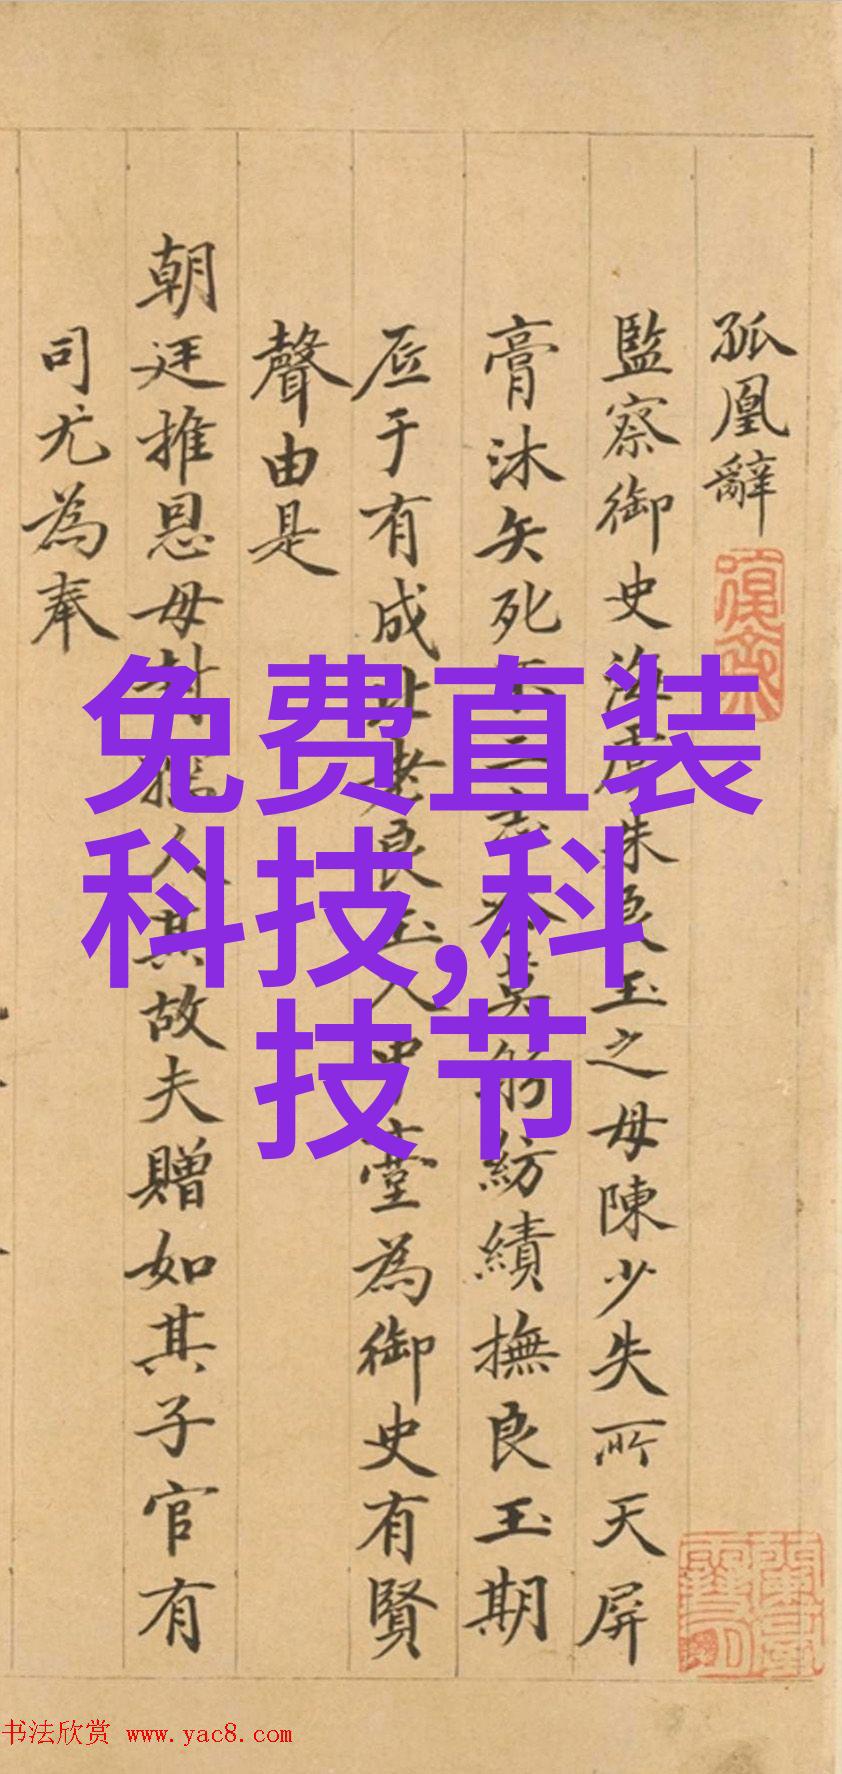 孤凰辭
監察御史海虞朱良玉之母陳少失所天屏
膏沐矢死不二志躬紡績撫良玉期
底于有成
聲由是
朝廷推恩母封孺人其故夫贈如其子官有
司尤為奉
為御史有賢
免费直装
科技,科
技节
书法欣赏 www.yac8.com